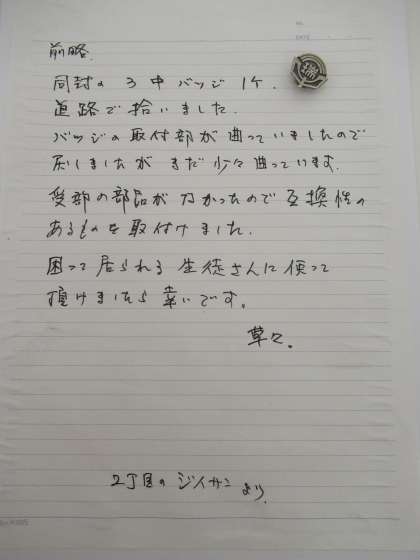 前略.
同封の 3中 バッジ 1ケ.
道路で拾いました.
バッジの取付部が曲っていましたので
戻しましたが まだ少々曲っています.
受部の部品が無かったので互換性の
あるものを取付けました.
困って居られる 生徒さんに使って
頂けましたら幸いです。
草々。
2丁目の ジイサン より.